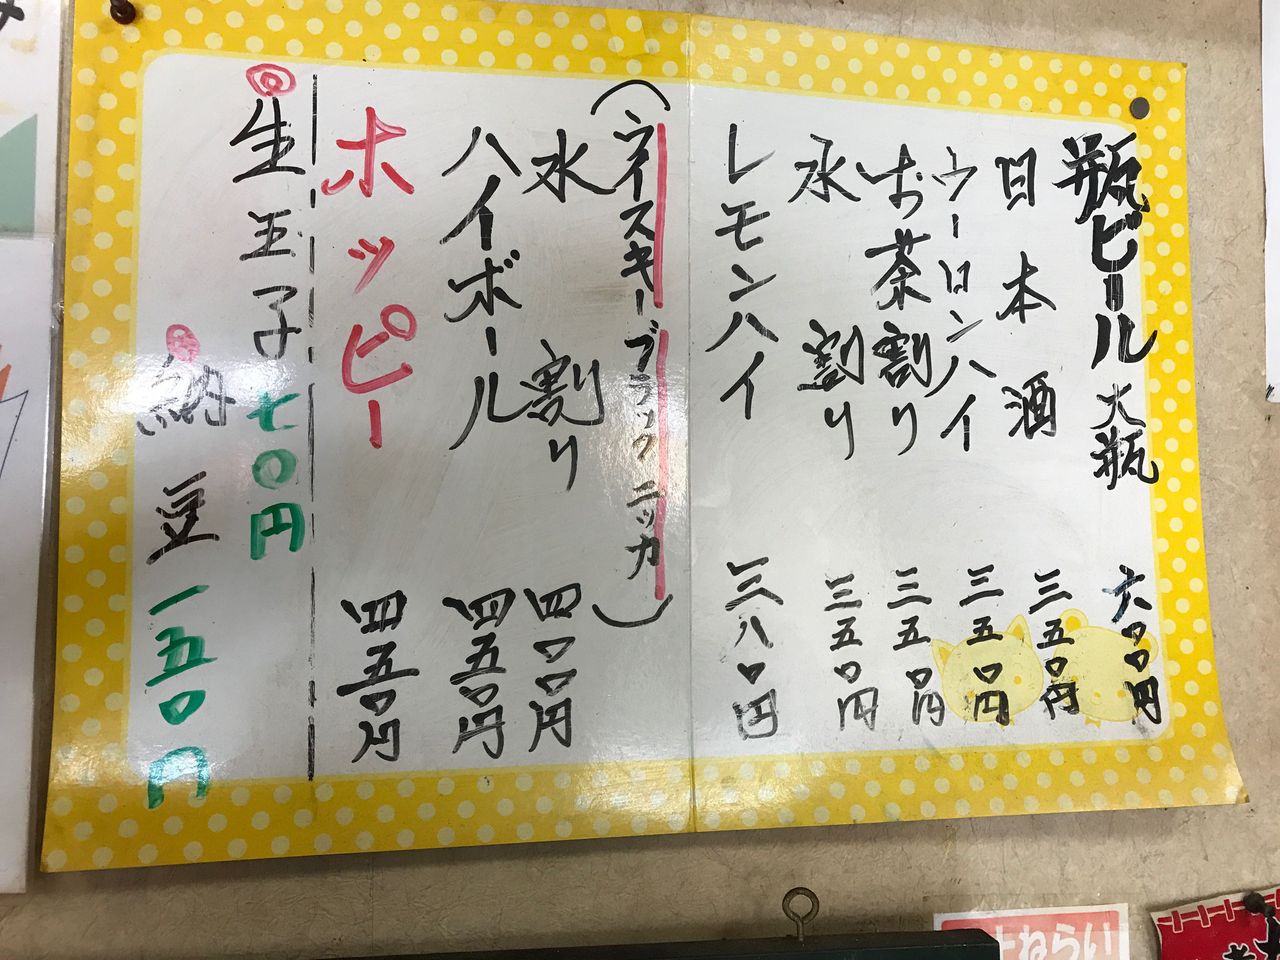 瓶ビール 大瓶 六〇〇円
日本酒 三五〇円
ウーロンハイ 三五〇円
お茶割り 三五〇円
水割り 三五〇円
レモンハイ 三八〇円
(ウイスキーブラックニッカ)
水割り 四〇〇円
ハイボール 四五〇円
ホッピー 四五〇円
生玉子 七〇円
納豆 一五〇円
ねらい